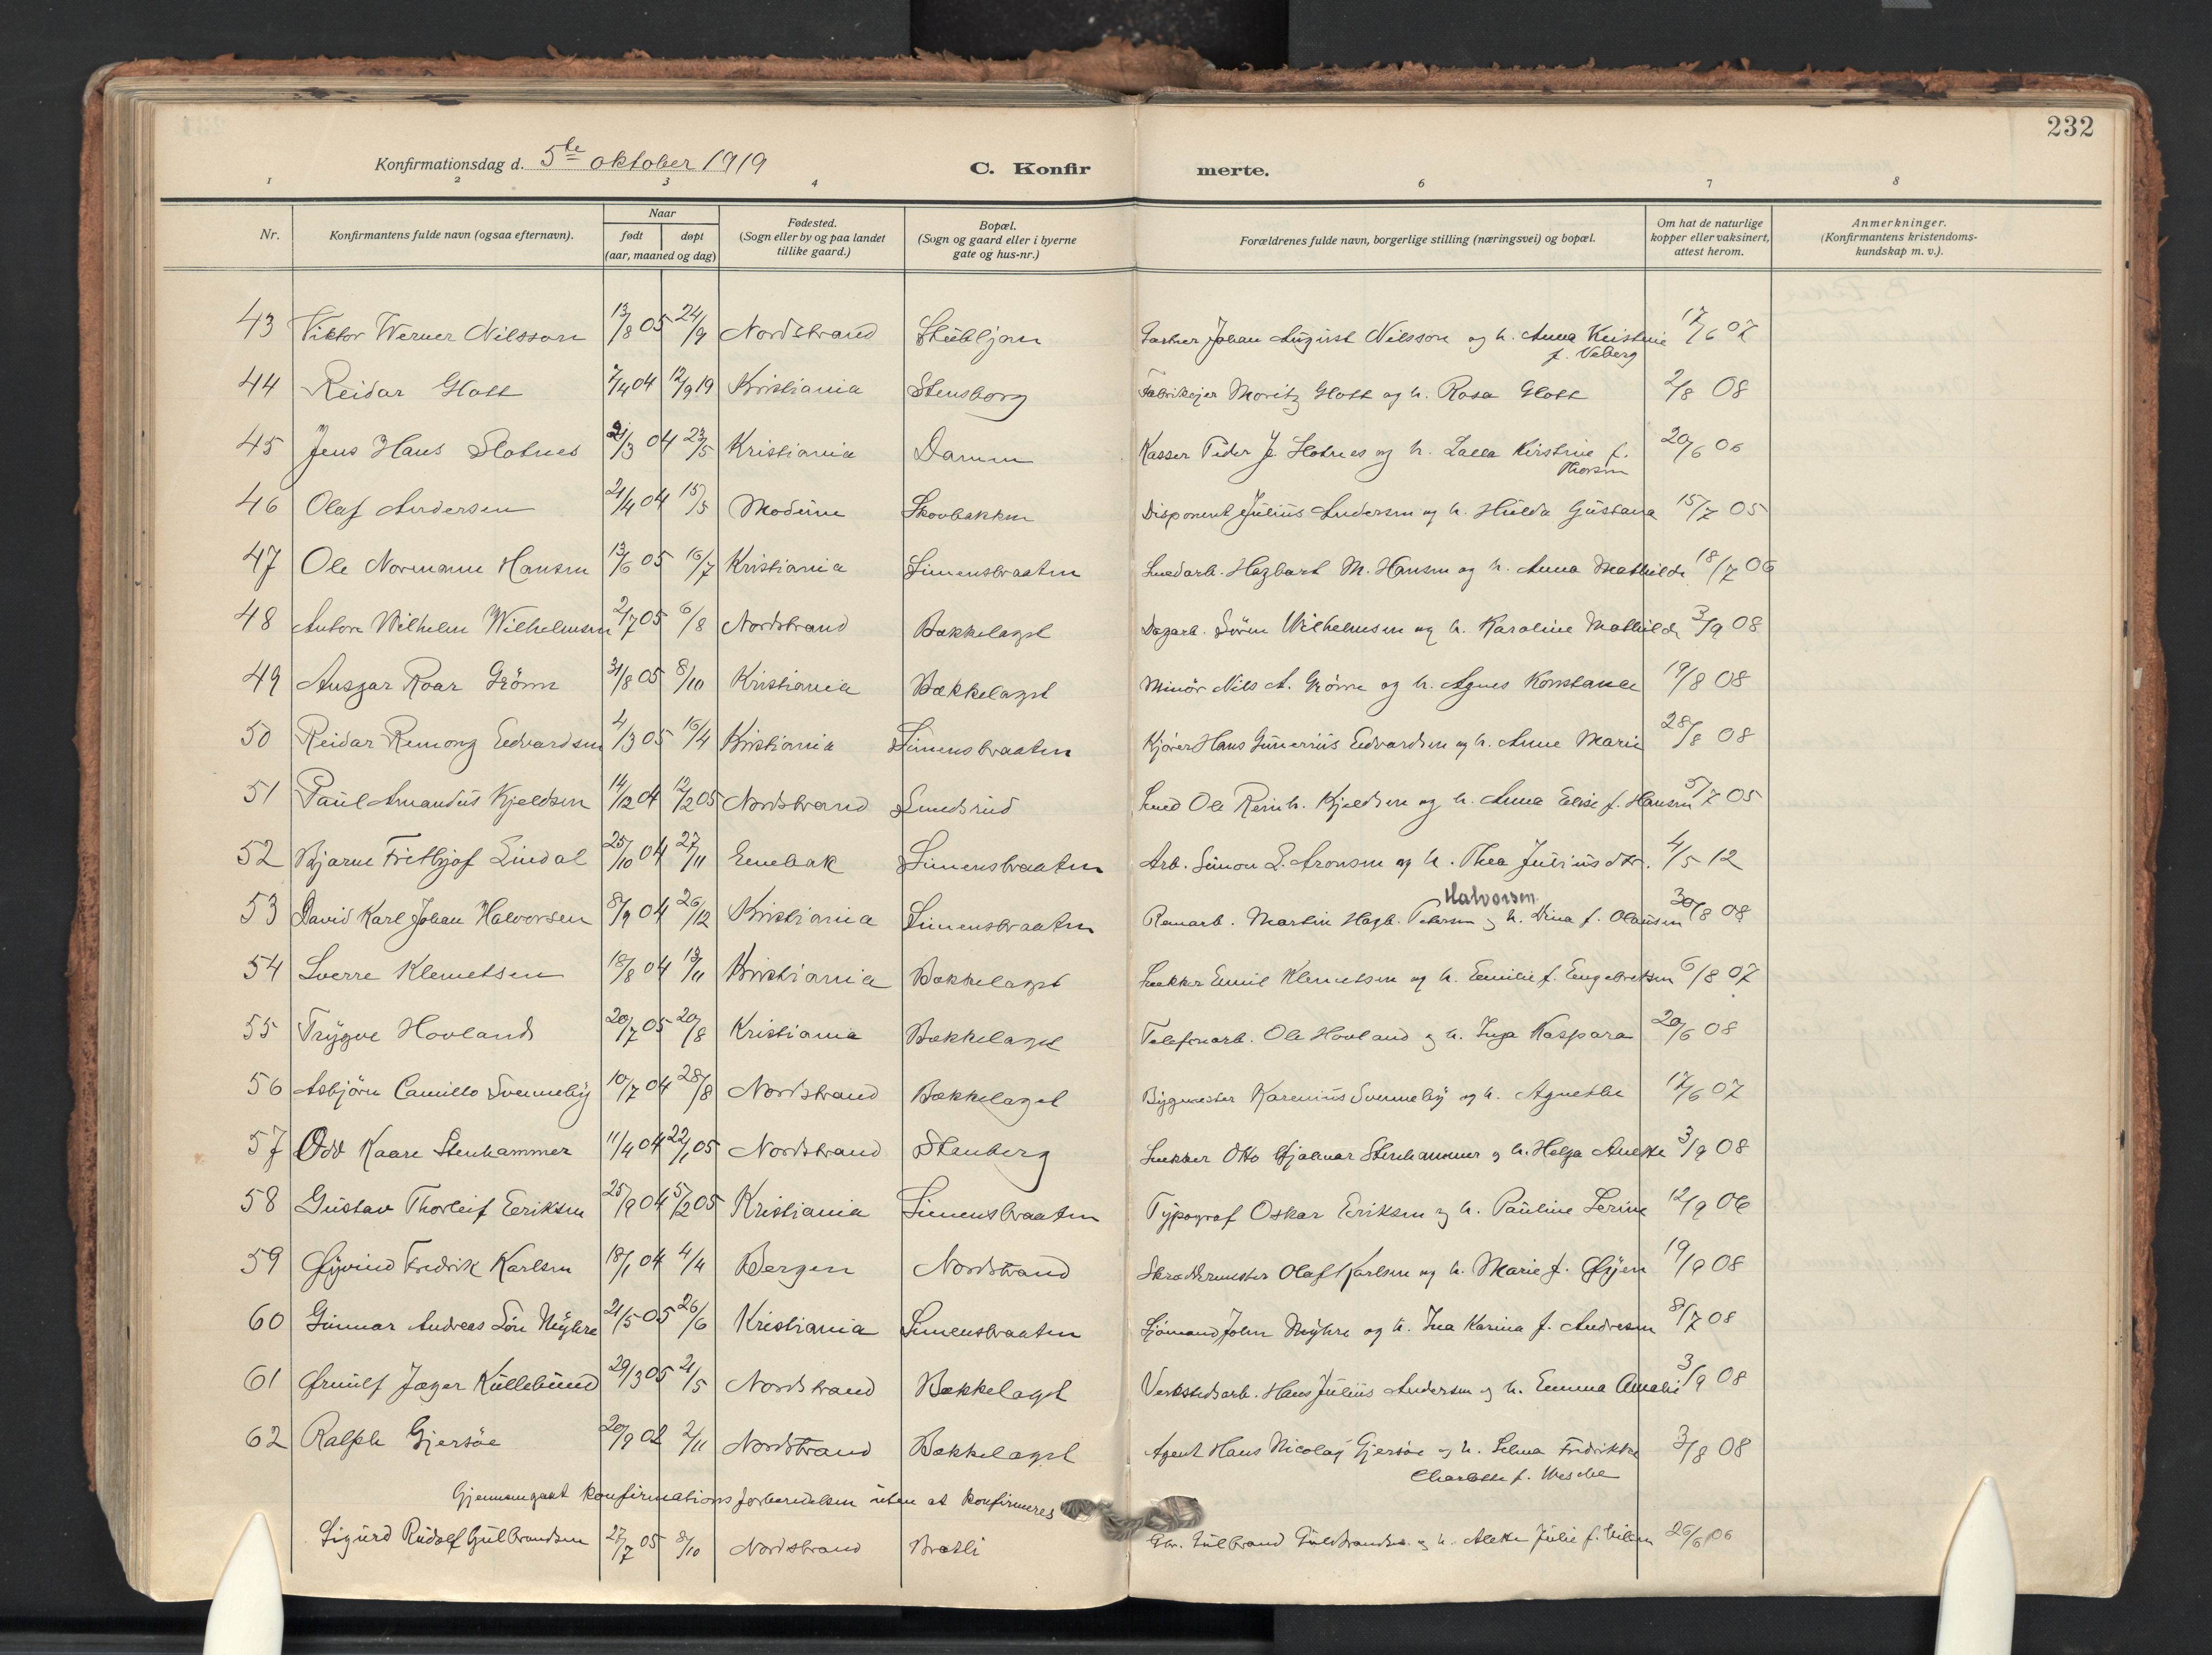 232
Konfirmationsdag d. 5te oktober 1919 C. Konfir merte.
1 2 3 4 6 7 8
Nr. Konfirmantens fulde navn (ogsaa efternavn). Naar født døpt (aar, maaned og dag) Fødested. (Sogn eller by og paa landet tillike gaard.) Bopæl. (Sogn og gaard eller i byerne gate og hus-nr.) Forældrenes fulde navn, borgerlige stilling (næringsvei) og bopæl. Om hat de naturlige kopper eller vaksinert, attest herom. Anmerkninger. (Konfirmantens kristendoms-kundskap m. v.).
43 Viktor Werner Nilsson 13/8 05 24/9 Nordstrand Stubljan Gartner Johan August Nilsson og h. Anna Kristine 17/6 07
f. Veberg
44 Reidar Glott 7/4 04 12/9 19 Kristiania Stensborg Fabrikejer Moritz Glott og h. Rosa Glott 2/8 08
45 Jens Hans Slotnes 21/3 04 23/5 Kristiania Damm Kasser Peder J. Slotnes og h. Laella Kirstine f. 20/6 06
Thorsen
46 Olaf Andersen 21/4 04 15/5 Modum Skovbakken Disponent Julius Andersen og h. Hulda Gustava 15/7 05
47 Ole Normann Hansen 13/6 05 16/7 Kristiania Simensbraaten Smedarb. Hagbart M. Hansen og h. Anna Mathilde 18/7 06
48 Anton Wilhelm Wilhelmsen 2/7 05 6/8 Nordstrand Bækkelaget Dagarb. Sören Wilhelmsen og h. Karoline Mathilde 3/9 08
49 Ansgar Roar Grönn 31/8 05 8/10 Kristiania Bækkelaget Minör Nils A. Grönn og h. Agnes Konstance 19/8 08
50 Reidar Remong Edvardsen 4/3 05 16/4 Kristiania Simensbraaten Kjörer Hans Gunerius Edvardsen og h. Anne Marie 28/8 08
51 Paul Amandus Kjeldsen 14/12 04 12/2 05 Nordstrand Smedsrud Smed Ole Reinh. Kjeldsen og h. Anna Elise f. Hansen 5/7 05
52 Bjarne Fritbjof Lindal 25/10 04 27/11 Enebak Simensbraaten Arb. Simon L. Aronsen og h. Thea Juliusdtr. 4/5 12
53 David Karl Johan Halvorsen 8/9 04 26/12 Kristiania Simensbraaten Renarb. Martin Hagb. Petersen og h. Dina f. Olausen 30/8 08
Halvorsen
54 Sverre Klemetsen 18/8 04 13/11 Kristiania Bækkelaget Snekker Emil Klemetsen og h. Emilie f. Engebretsen 6/8 07
55 Trygve Hovland 20/7 05 20/8 Kristiania Bækkelaget Telefonarb. Ole Hovland og h. Inga Kaspara 20/6 08
56 Asbjörn Camillo Svenneby 10/7 04 28/8 Nordstrand Bækkelaget Bygmester Karenius Svenneby og h. Agnethe 17/6 07
57 Odd Kaare Stenhammer 11/4 04 22/1 05 Nordstrand Stenberg Snekker Otto Hjalmar Stenhammer og h. Helga Anette 3/9 08
58 Gustav Thorleif Eriksen 25/9 04 5/2 05 Kristiania Simensbraaten Typograf Oskar Eriksen og h. Pauline Serine 12/9 06
59 Øyvind Fredrik Karlsen 18/1 04 4/4 Bergen Nordstrand Skræddermester Olaf Karlsen og h. Marie f. Øyen 19/9 08
60 Gunnar Andreas Lön Myhre 21/5 05 26/6 Kristiania Simensbraaten Sjömand John Myhre og h. Ina Karina f. Andresen 8/7 08
61 Ørnulf Jæger Kullebund 29/3 05 21/5 Nordstrand Bækkelaget Verkstedsarb. Hans Julius Andersen og h. Emma Amalie 3/9 08
62 Ralph Gjersøe 20/9 02 2/11 Nordstrand Bækkelaget Agent Hans Nicolay Gjersöe og h. Selma Fredrikke 3/8 08
Charlotte f. Wesche
Gjennemgaat konfirmationsforberedelsen uten at konfirmeres
Sigurd Rudolf Gulbrandsen 27/7 05 8/10 Nordstrand Bratli Gbr. Gulbrand Gulbrandsen og h. Alette Julie f. Nilsen 26/6 06